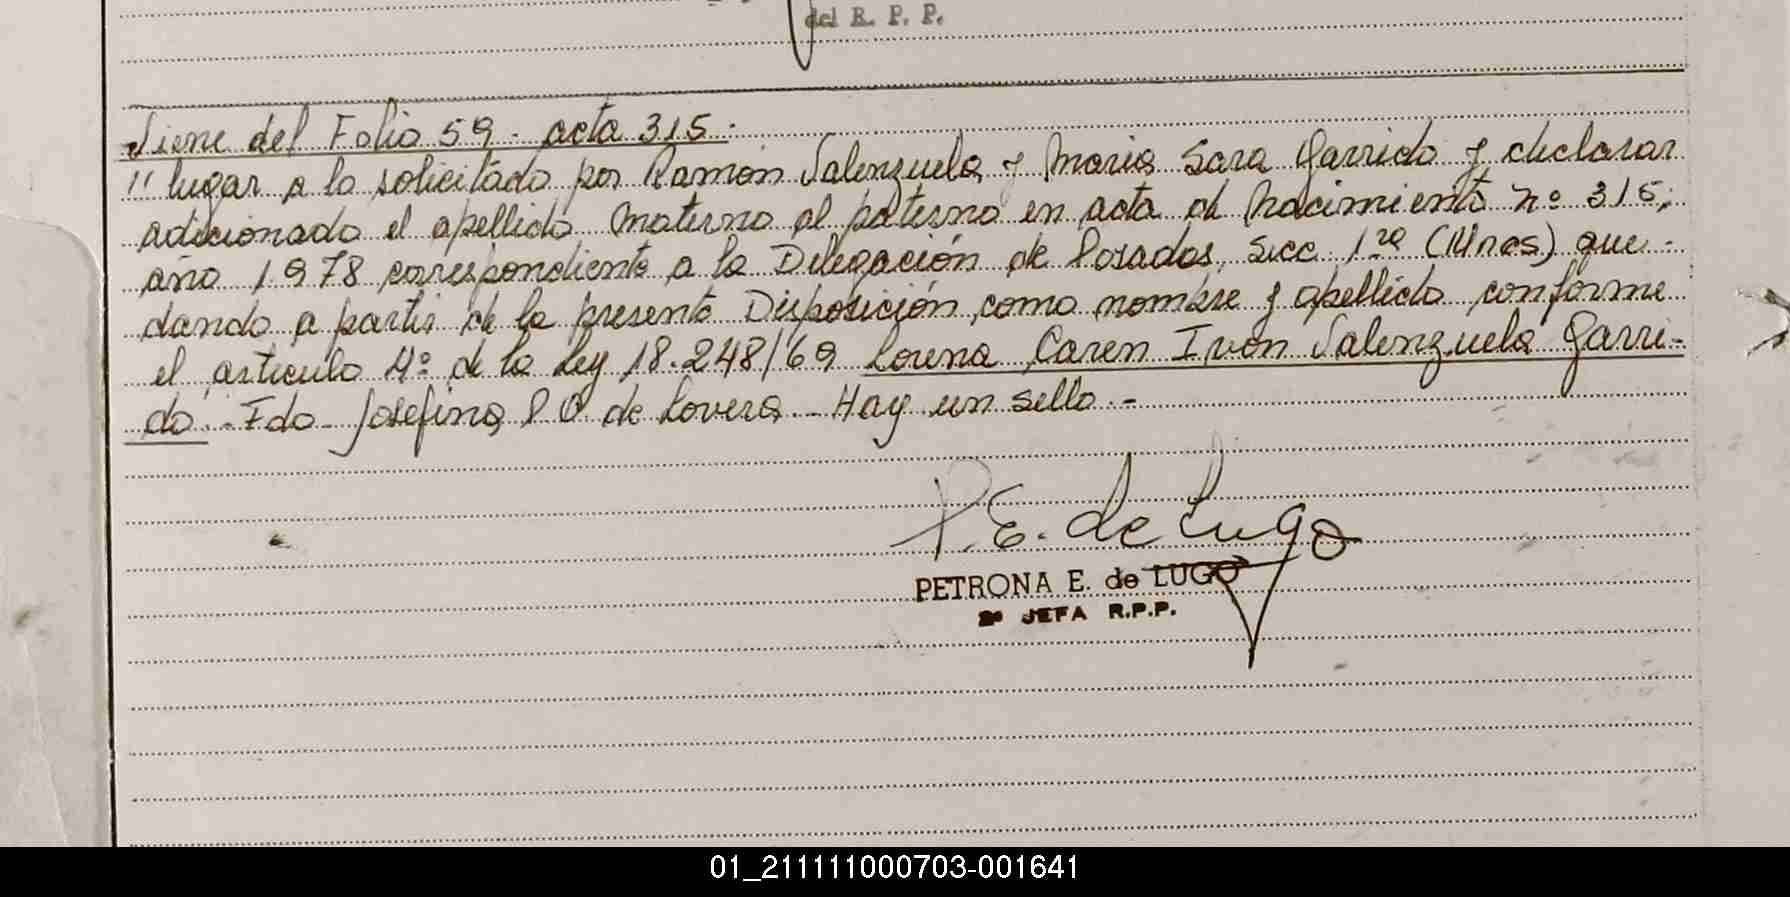 del R. P. P.
Viene del Folio 59. acta 315.
" lugar a lo solicitado por Ramón Valenzuela y Maria Sara Garrido y declarar
adicionado el apellido materno al paterno en acta de nacimiento nº 315,
año 1978 correspondiente a la Delegación de Posadas, Secc. 1ra (Mnes) que-
dando a partir de la presente Disposición, como nombre y apellido conforme
el articulo 4º de la Ley 18.248/69 Lorena Caren Ivon Valenzuela Garri-
do. - Fdo Josefina P O de Lovera - Hay un sello. -
P. E. de Lugo
PETRONA E. de LUGO
2ª JEFA R.P.P.
01_211111000703-001641